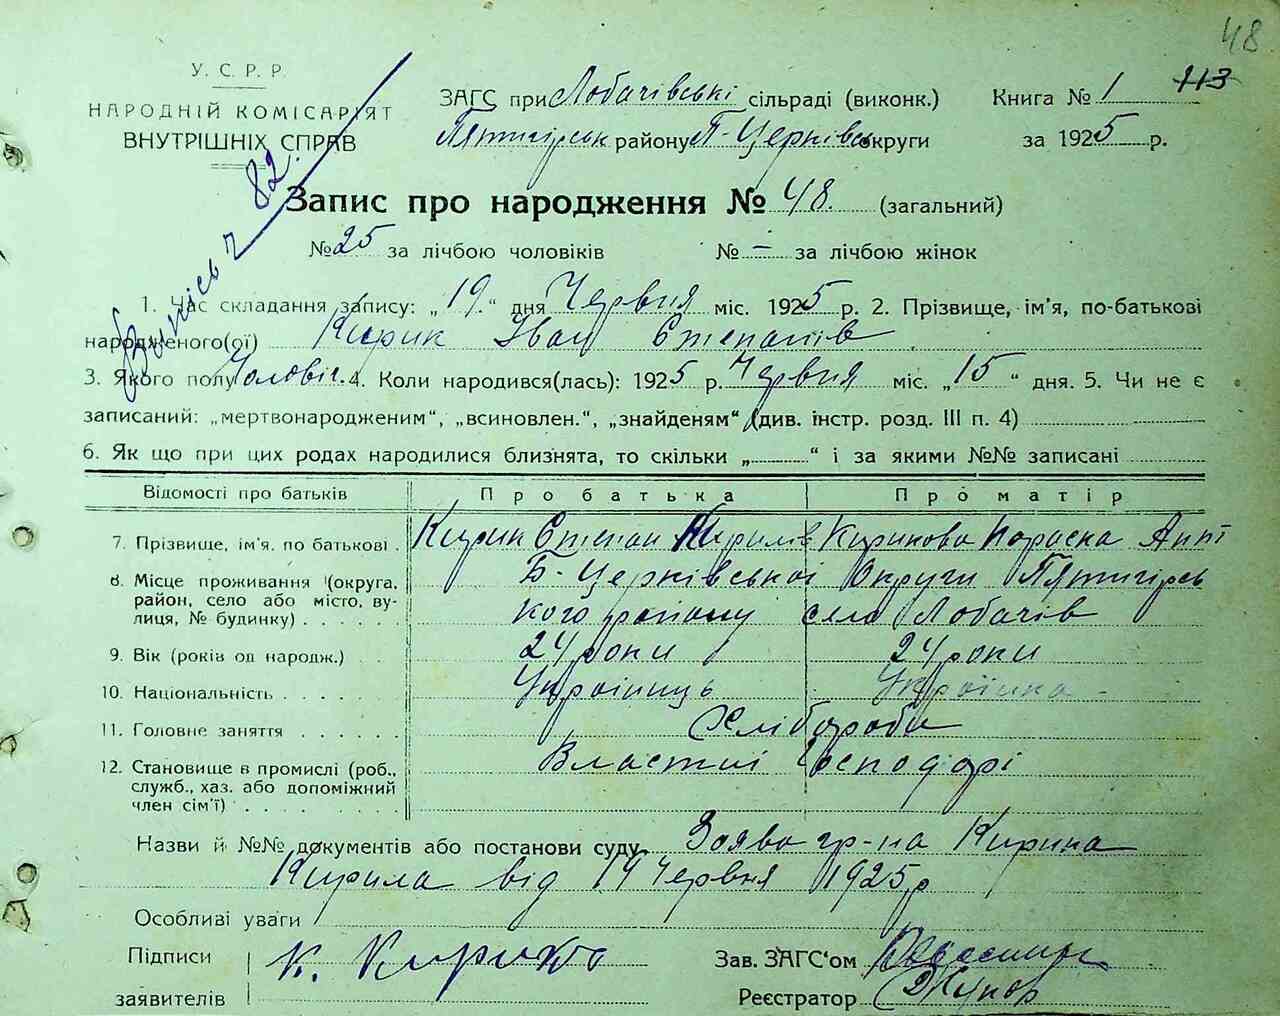 48
У. С. Р. Р.
НАРОДНІЙ КОМІСАРІЯТ
ВНУТРІШНІХ СПРАВ
ЗАГС при Лобачівські сільраді (виконк.) Книга № 1 113
Пятигірськ району Б-Церківськ округи за 1925 р.
82
Запис про народження № 48. (загальний)
№ 25 за лічбою чоловіків № – за лічбою жінок
1. Час складання запису: „19“ дня Червня міс. 1925 р. 2. Прізвище, ім'я, по-батькові
народженого(ої) Кирик Іван Степанів
3. Якого полу Чоловіч. 4. Коли народився(лась): 1925 р. Червня міс. „15“ дня. 5. Чи не є
записаний: „мертвонародженим“, „всиновлен.“, „знайденям“ (див. інстр. розд. III п. 4)
6. Як що при цих родах народилися близнята, то скільки „ “ і за якими №№ записані
Відомості про батьків Про батька Про матір
7. Прізвище, ім'я. по батькові . Кирик Степан Кирилів Кирикова Параска Ант
8. Місце проживання (округа, Б-Церківської Округи Пятигірсь
район, село або місто, ву- кого району село Лобачів
лиця, № будинку) . . . . . .
9. Вік (років од народж.) . . 24 роки 24 роки
10. Національність . . . . . Україниць Українка
11. Головне заняття . . . . . . Хлібороби
12. Становище в промислі (роб., Властиі Господарі
служб., хаз. або допоміжний
член сім'ї) . . . . . . . .
Назви й №№ документів або постанови суду Заява гр-на Кирика
Кирила від 19 Червня 1925 р
Особливі уваги
Підписи К. Кирик Зав. ЗАГС'ом
заявителів Реєстратор